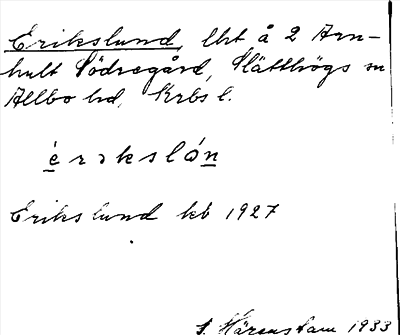 Erikslund, lht å 2 Arn-
hult Södregård, Slätthögs sn
Allbo hd, Krbs l.
èrɔkslón
Erikslund kb 1927
S. Härenstam 1933